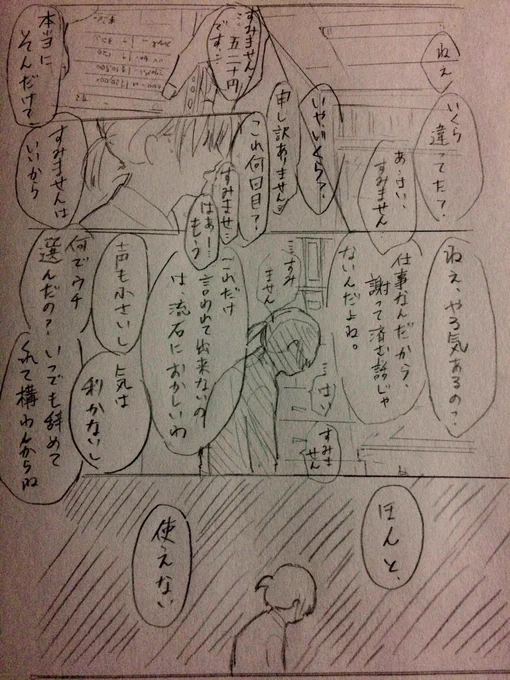 ねえ
いくら
違ってた？
あ…はい、
すみません
いやいくら？
すみません、
…五二十円
です…
申し訳ありません。
これ何回目？
すみませ…
はぁー…
もう
本当に
そんだけで
すみませんは
いいから
ねえ、やる気あるの？
仕事なんだから、
謝って済む話じゃ
ないんだよね。
…すみ
ません
…はい
すみま
せん
これだけ
言われて出来ないの
は、流石におかしいわ
声も小さいし
気は
利かないし
何でウチ
選んだの？いつでも辞めて
くれて構わんからね
ほんと、
使えない